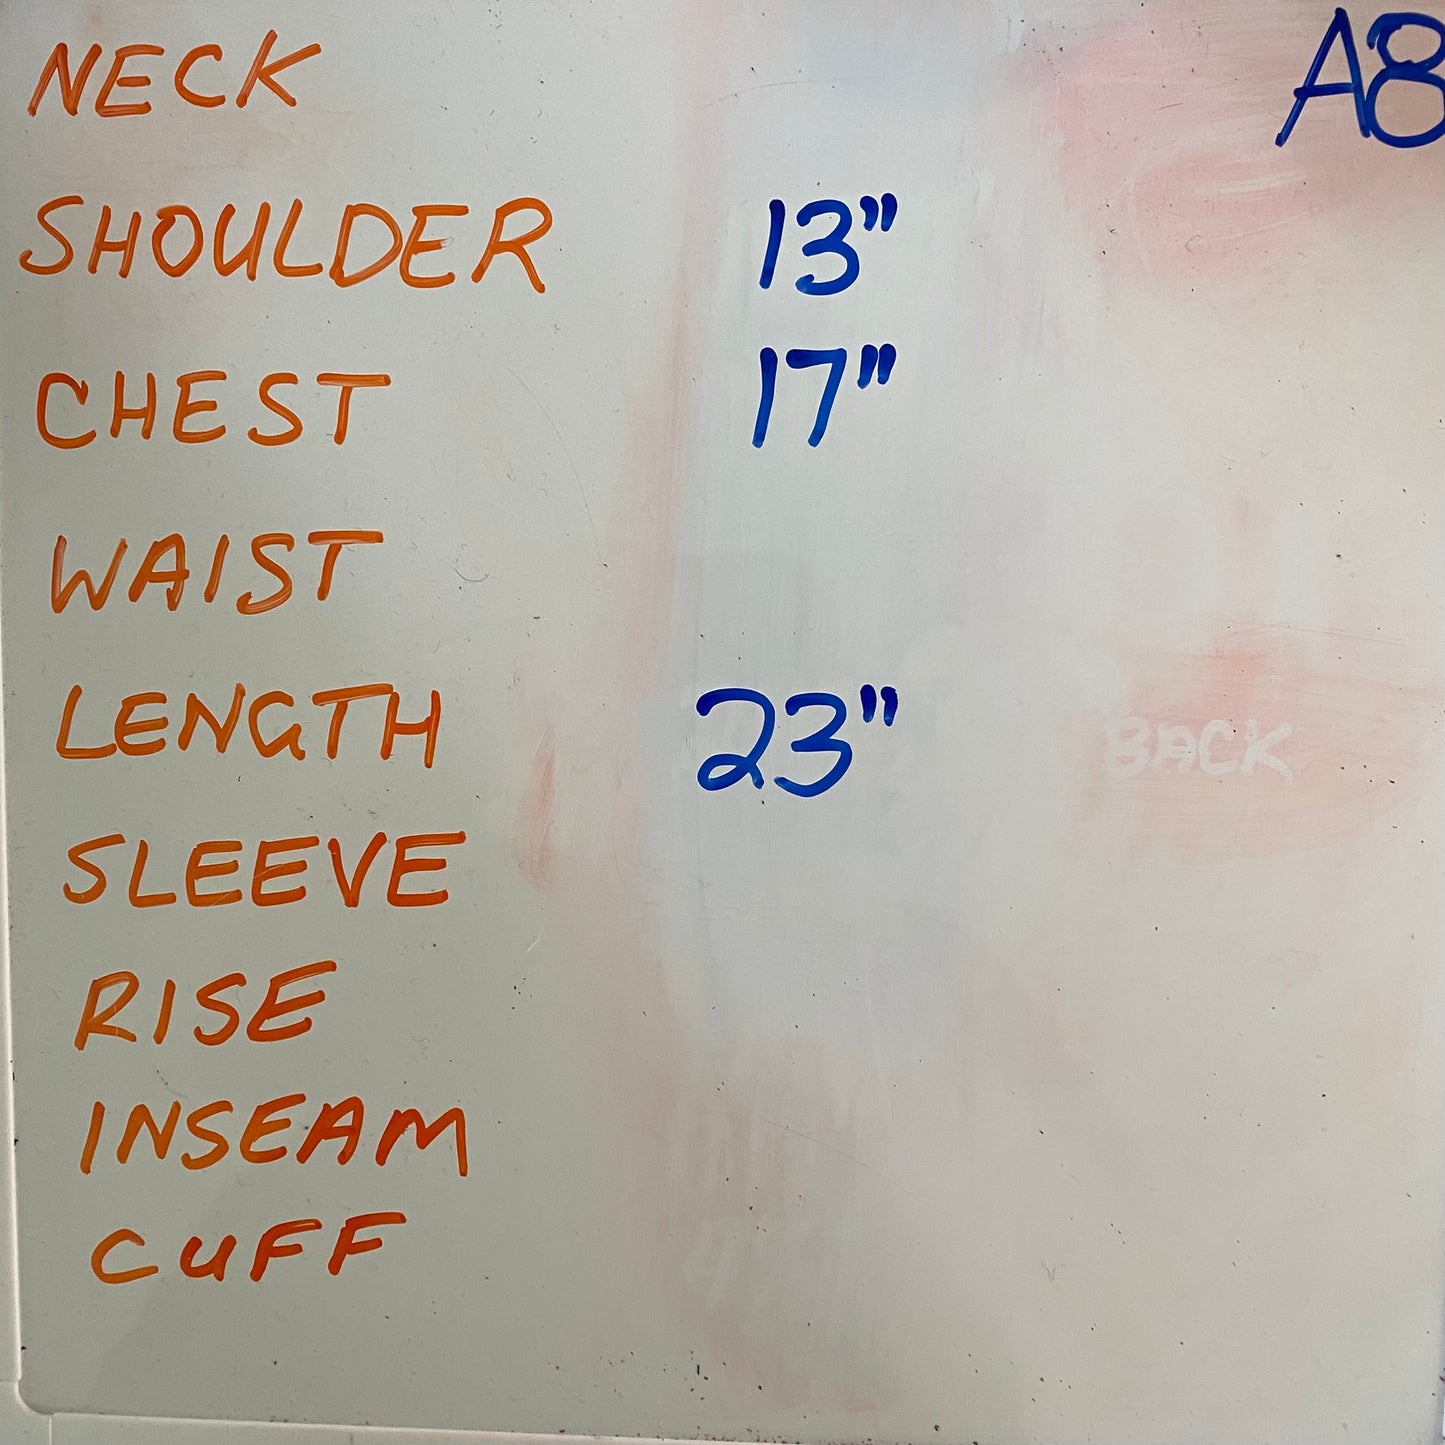 A8
NECK
SHOULDER 13"
CHEST 17"
WAIST
LENGTH 23" BACK
SLEEVE
RISE
INSEAM
CUFF